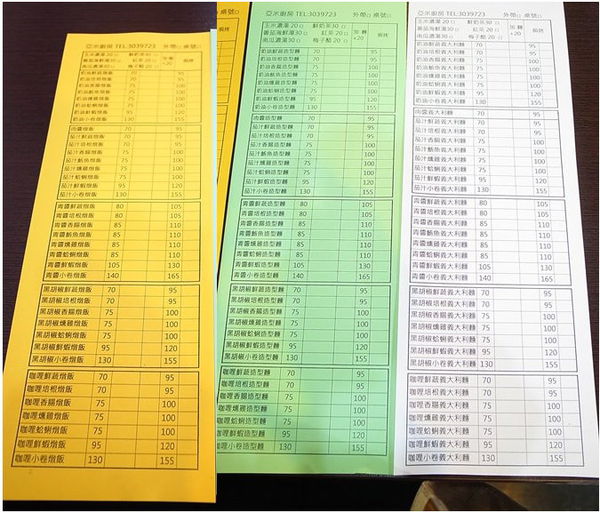 亞米廚房 TEL:3039723 外帶□ 桌號□
玉米濃湯20□ 鮮奶茶30□
蕃茄海鮮湯30□ 紅茶20□
南瓜濃湯30□ 梅子醋20□
+20 焗烤
奶油鮮蔬燉飯 70 95
奶油培根燉飯 70 95
奶油香腸燉飯 75 100
奶油鮪魚燉飯 75 100
奶油燻雞燉飯 75 100
奶油蛤蜊燉飯 75 100
奶油鮮蝦燉飯 95 120
奶油小卷燉飯 130 155
肉醬燉飯 70 95
茄汁鮮蔬燉飯 70 95
茄汁培根燉飯 70 95
茄汁香腸燉飯 75 100
茄汁鮪魚燉飯 75 100
茄汁燻雞燉飯 75 100
茄汁蛤蜊燉飯 75 100
茄汁鮮蝦燉飯 95 120
茄汁小卷燉飯 130 155
青醬鮮蔬燉飯 80 105
青醬培根燉飯 80 105
青醬香腸燉飯 85 110
青醬鮪魚燉飯 85 110
青醬燻雞燉飯 85 110
青醬蛤蜊燉飯 85 110
青醬鮮蝦燉飯 105 130
青醬小卷燉飯 140 165
黑胡椒鮮蔬燉飯 70 95
黑胡椒培根燉飯 70 95
黑胡椒香腸燉飯 75 100
黑胡椒燻雞燉飯 75 100
黑胡椒蛤蜊燉飯 75 100
黑胡椒鮮蝦燉飯 95 120
黑胡椒小卷燉飯 130 155
咖哩鮮蔬燉飯 70 95
咖哩培根燉飯 70 95
咖哩香腸燉飯 75 100
咖哩燻雞燉飯 75 100
咖哩蛤蜊燉飯 75 100
咖哩鮮蝦燉飯 95 120
咖哩小卷燉飯 130 155
亞米廚房 TEL:3039723 外帶□ 桌號□
玉米濃湯20□ 鮮奶茶30□
蕃茄海鮮湯30□ 紅茶20□
南瓜濃湯30□ 梅子醋20□
加麵+20 焗烤
奶油鮮蔬造型麵 70 95
奶油培根造型麵 70 95
奶油香腸造型麵 75 100
奶油鮪魚造型麵 75 100
奶油燻雞造型麵 75 100
奶油蛤蜊造型麵 75 100
奶油鮮蝦造型麵 95 120
奶油小卷造型麵 130 155
肉醬造型麵 70 95
茄汁鮮蔬造型麵 70 95
茄汁培根造型麵 70 95
茄汁香腸造型麵 75 100
茄汁鮪魚造型麵 75 100
茄汁燻雞造型麵 75 100
茄汁蛤蜊造型麵 75 100
茄汁鮮蝦造型麵 95 120
茄汁小卷造型麵 130 155
青醬鮮蔬造型麵 80 105
青醬培根造型麵 80 105
青醬香腸造型麵 85 110
青醬鮪魚造型麵 85 110
青醬燻雞造型麵 85 110
青醬蛤蜊造型麵 85 110
青醬鮮蝦造型麵 105 130
青醬小卷造型麵 140 165
黑胡椒鮮蔬造型麵 70 95
黑胡椒培根造型麵 70 95
黑胡椒香腸造型麵 75 100
黑胡椒燻雞造型麵 75 100
黑胡椒蛤蜊造型麵 75 100
黑胡椒鮮蝦造型麵 95 120
黑胡椒小卷造型麵 130 155
咖哩鮮蔬造型麵 70 95
咖哩培根造型麵 70 95
咖哩香腸造型麵 75 100
咖哩燻雞造型麵 75 100
咖哩蛤蜊造型麵 75 100
咖哩鮮蝦造型麵 95 120
咖哩小卷造型麵 130 155
亞米廚房 TEL:3039723 外帶□ 桌號□
玉米濃湯20□ 鮮奶茶30□
蕃茄海鮮湯30□ 紅茶20□
南瓜濃湯30□ 梅子醋20□
加麵+20 焗烤
奶油鮮蔬義大利麵 70 95
奶油培根義大利麵 70 95
奶油香腸義大利麵 75 100
奶油鮪魚義大利麵 75 100
奶油燻雞義大利麵 75 100
奶油蛤蜊義大利麵 75 100
奶油鮮蝦義大利麵 95 120
奶油小卷義大利麵 130 155
肉醬義大利麵 70 95
茄汁鮮蔬義大利麵 70 95
茄汁培根義大利麵 70 95
茄汁香腸義大利麵 75 100
茄汁鮪魚義大利麵 75 100
茄汁燻雞義大利麵 75 100
茄汁蛤蜊義大利麵 75 100
茄汁鮮蝦義大利麵 95 120
茄汁小卷義大利麵 130 155
青醬鮮蔬義大利麵 80 105
青醬培根義大利麵 80 105
青醬香腸義大利麵 85 110
青醬鮪魚義大利麵 85 110
青醬燻雞義大利麵 85 110
青醬蛤蜊義大利麵 85 110
青醬鮮蝦義大利麵 105 130
青醬小卷義大利麵 140 165
黑胡椒鮮蔬義大利麵 70 95
黑胡椒培根義大利麵 70 95
黑胡椒香腸義大利麵 75 100
黑胡椒燻雞義大利麵 75 100
黑胡椒蛤蜊義大利麵 75 100
黑胡椒鮮蝦義大利麵 95 120
黑胡椒小卷義大利麵 130 155
咖哩鮮蔬義大利麵 70 95
咖哩培根義大利麵 70 95
咖哩香腸義大利麵 75 100
咖哩燻雞義大利麵 75 100
咖哩蛤蜊義大利麵 75 100
咖哩鮮蝦義大利麵 95 120
咖哩小卷義大利麵 130 155